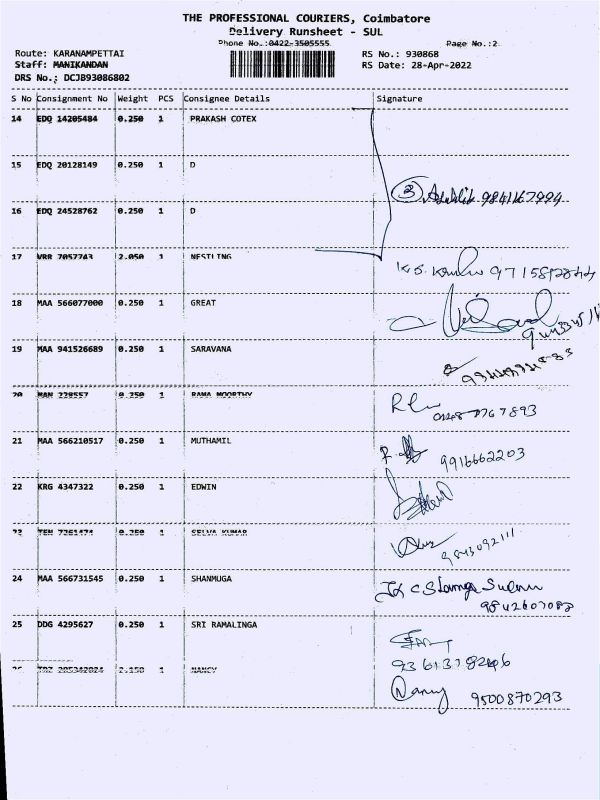 THE PROFESSIONAL COURIERS, Coimbatore
Delivery Runsheet - SUL
Phone No.:0422-3505555 Page No.:2
Route: KARANAMPETTAI RS No.: 930868
Staff: MANIKANDAN RS Date: 28-Apr-2022
DRS No.: DCJB93086802
S No Consignment No Weight PCS Consignee Details Signature
14 EDQ 14205484 0.250 1 PRAKASH COTEX
15 EDQ 20128149 0.250 1 D
3 9841167994
16 EDQ 24528762 0.250 1 D
17 VRR 7057743 2.050 1 NESTLING
18 MAA 566077000 0.250 1 GREAT
19 MAA 941526689 0.250 1 SARAVANA
20 MAN 228557 0.250 1 RAMA MOORTHY
21 MAA 566210517 0.250 1 MUTHAMIL
9916662203
22 KRG 4347322 0.250 1 EDWIN
23 TEN 7261474 0.250 1 SELVA KUMAR
9843092111
24 MAA 566731545 0.250 1 SHANMUGA
9842607083
25 DDG 4295627 0.250 1 SRI RAMALINGA
26 2.150 1 NANCY
Nancy 9500870293